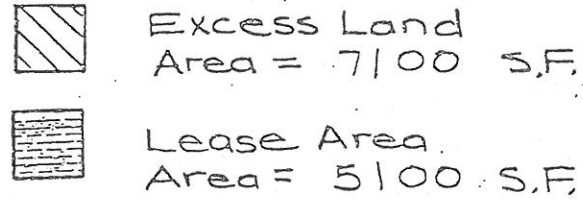 Excess Land
Area = 7100 S.F.
Lease Area
Area = 5100 S.F.